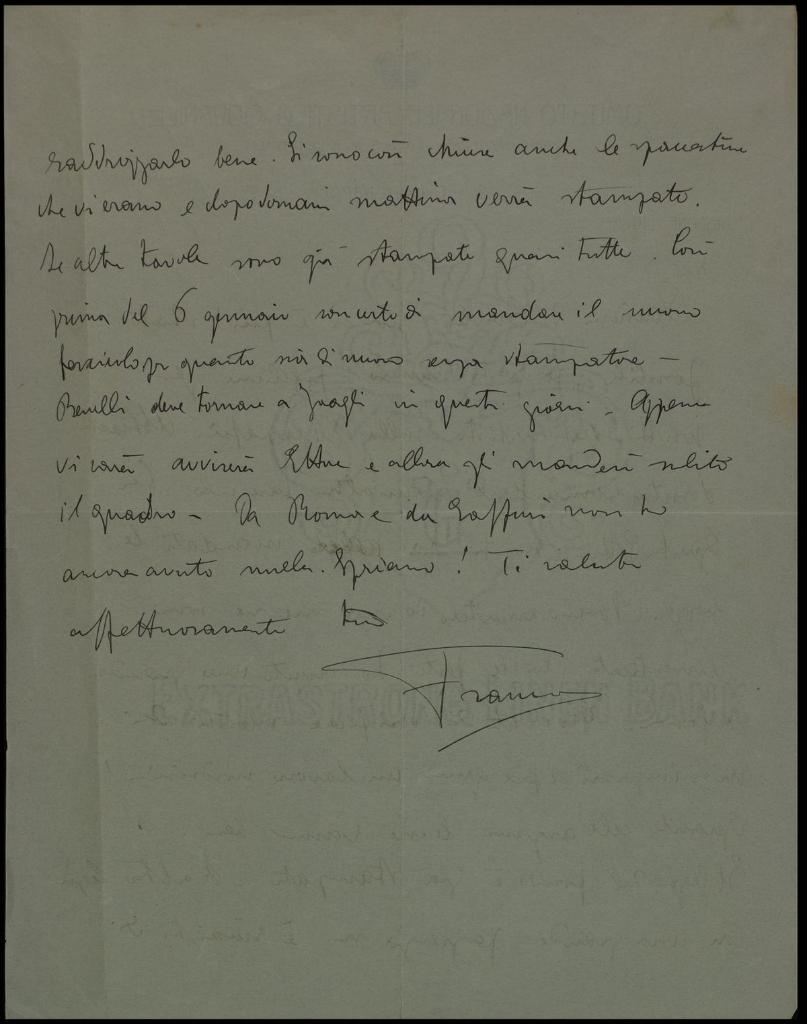 raddrizzarlo bene. Si sono così chiuse anche le spaccature
che vi erano e dopodomani mattina verrà stampato.
Le altre tavole sono già stampate quasi tutte. Così
prima del 6 gennaio son certo di mandare il nuovo
fascicolo per quanto sia di nuovo senza stampatore –
Benelli deve tornare a Zoagli in questi giorni – Appena
vi sarà avviserà Ettore e allora gli manderò subito
il quadro – Da Roma e da non ho
ancora avuto nulla. Speriamo! Ti saluta
affettuosamente tuo
Franco